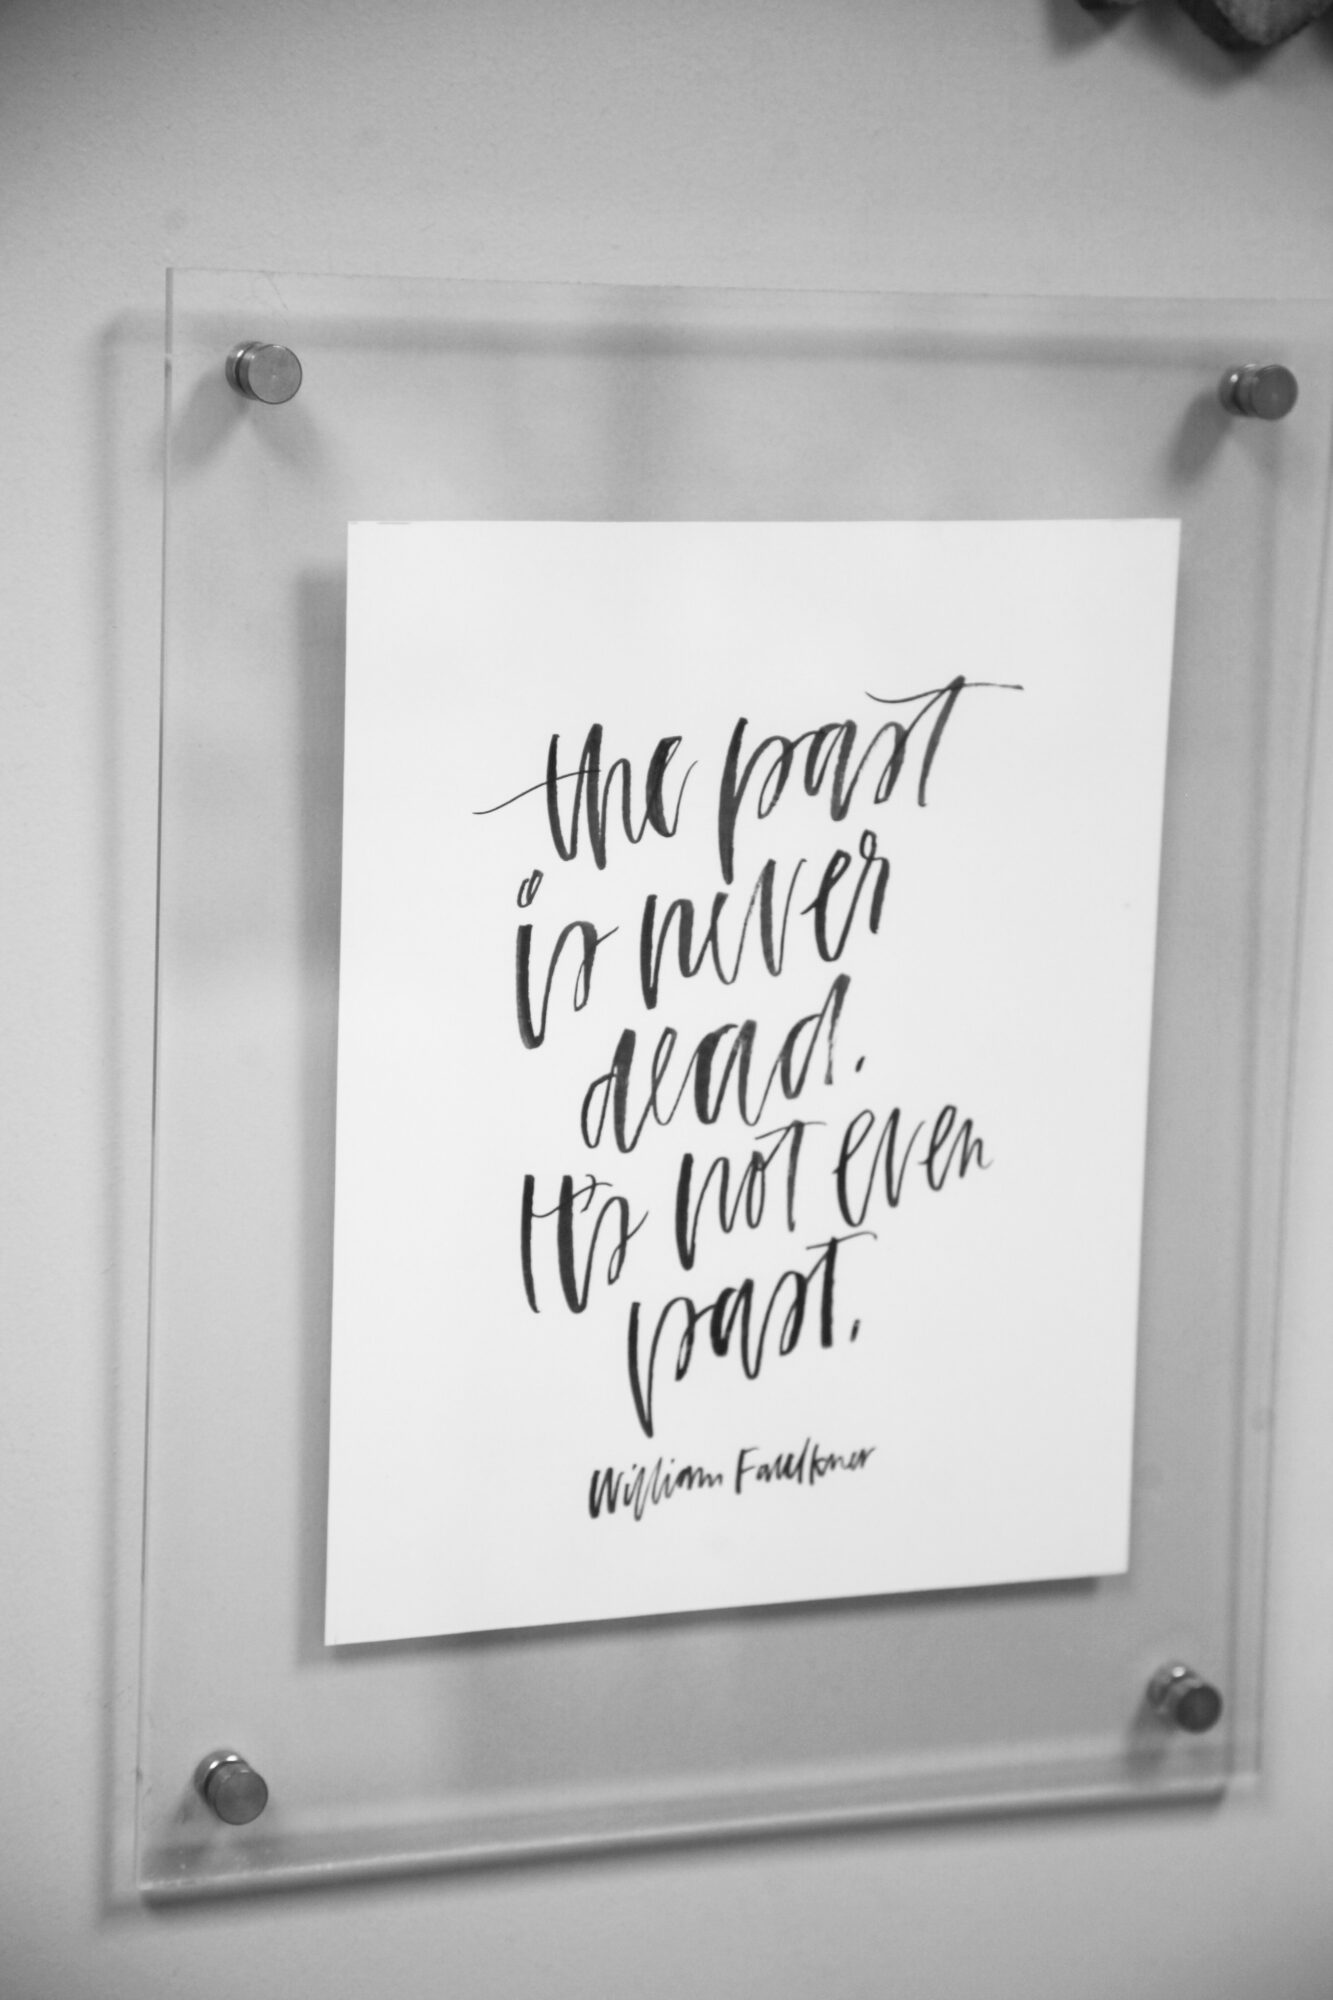 the past
is never
dead.
It's not even
past.
William Faulkner